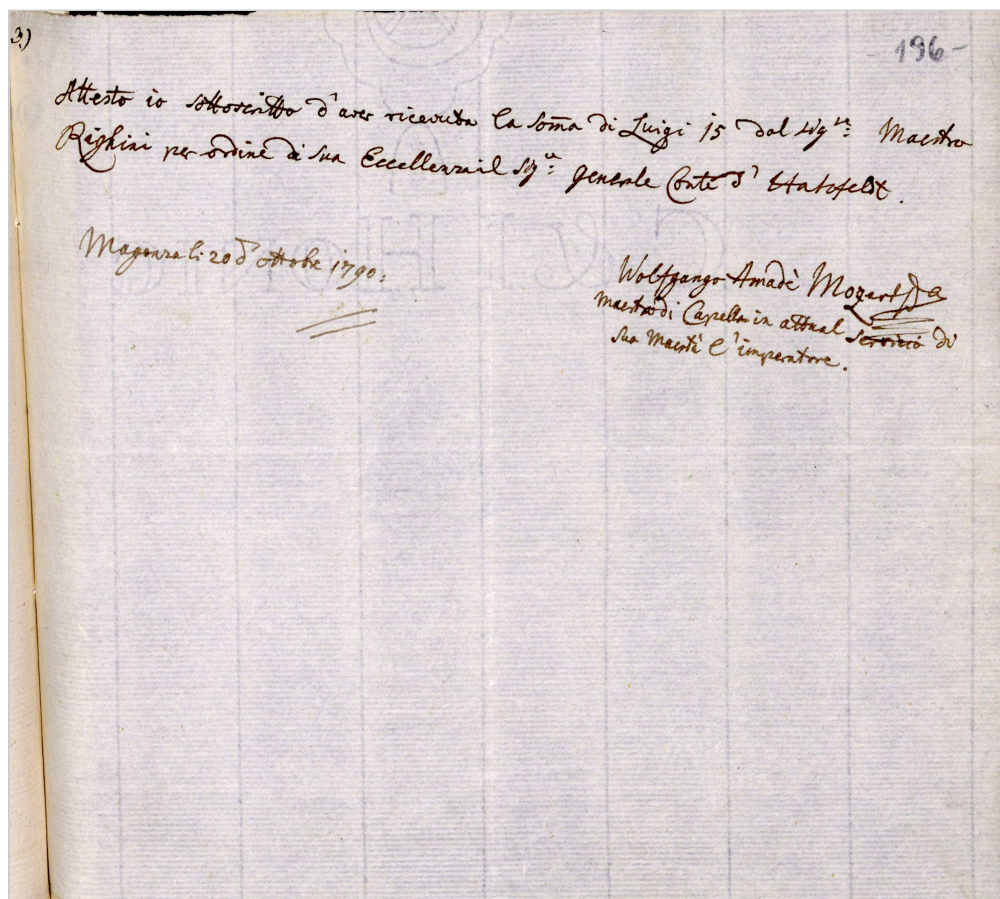 3)
-196-
Attesto io sottoscritto d'aver ricevuta la som̃a di Luigi 15 dal Sigre: Maestro
Righini per ordine di sua Eccellenza il Sgre: generale Conte d' Hatzfeldt.
Magonza li 20 d' ottobre 1790:
Wolfgango Amadè Mozart
Maestro di Capella in attual servicio di
sua Maestà l'imperatore.